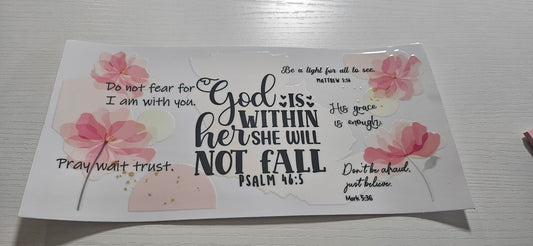 Do not fear for
I am with you.
Pray wait trust.
God IS
WITHIN
her SHE WILL
NOT FALL
PSALM 46:5
Be a light for all to see.
MATTHEW 5:16
His grace
is enough.
Don't be afraid,
just believe.
Mark 5:36